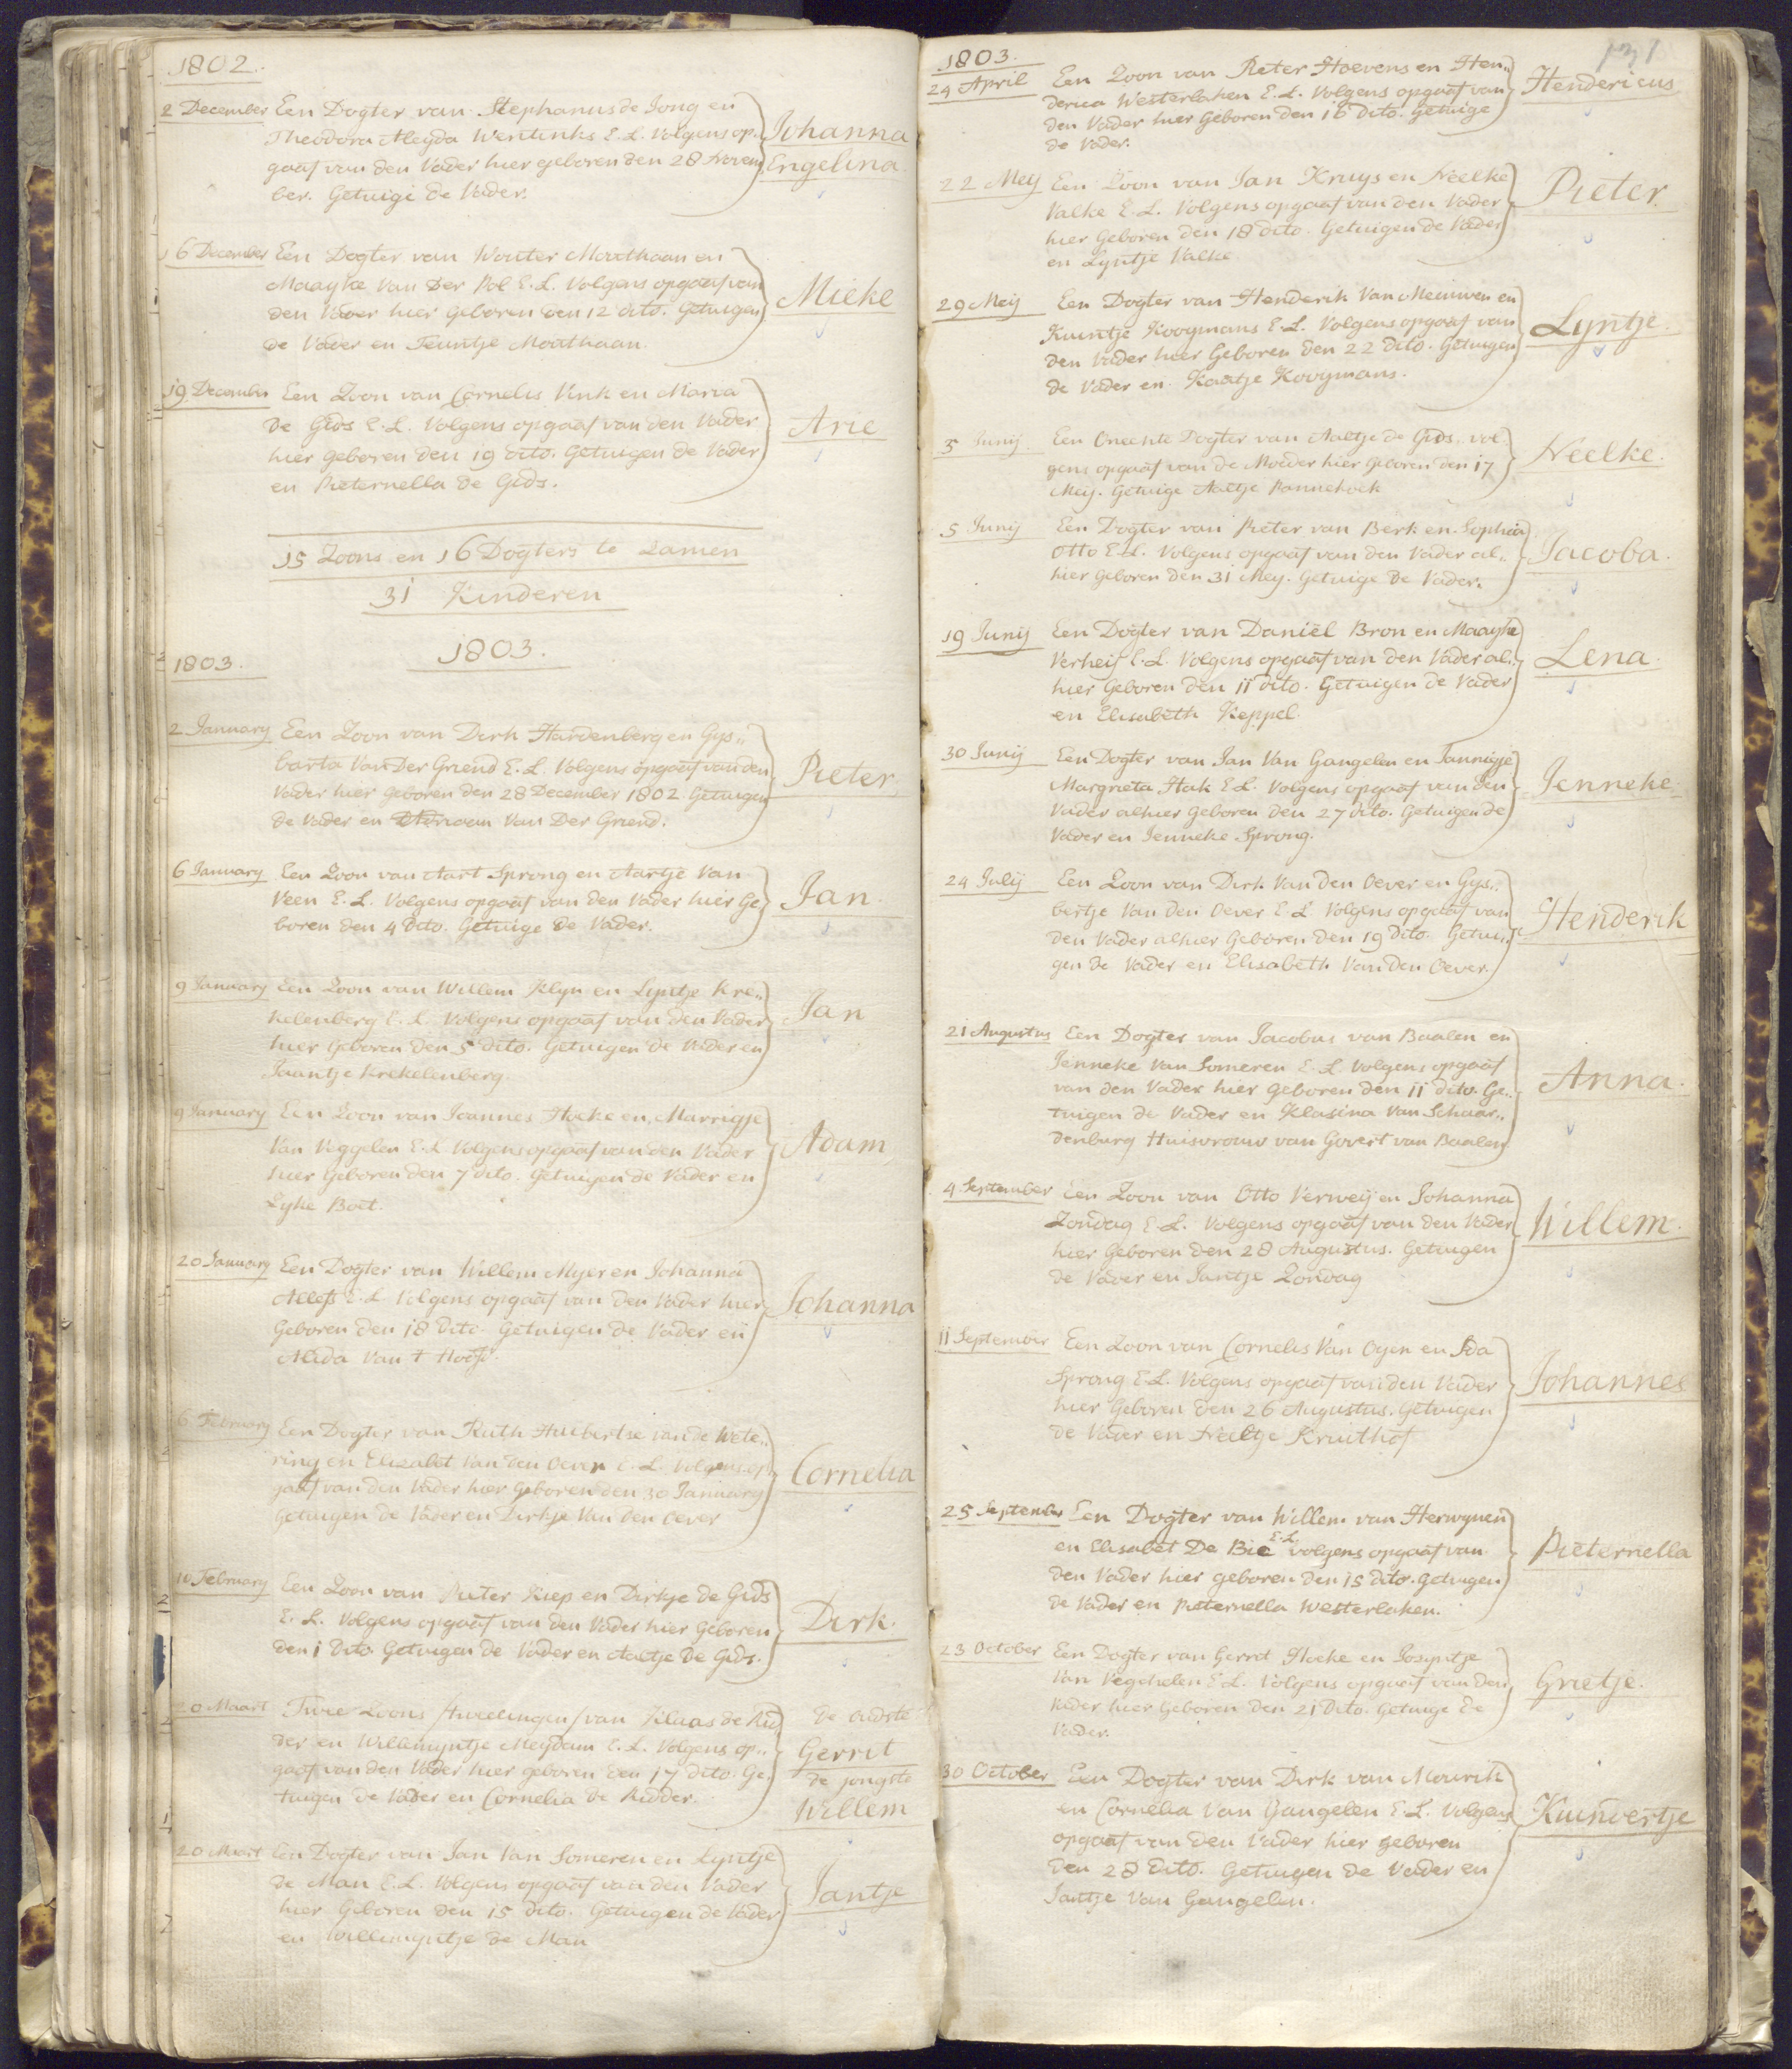 1802.
2 December Een Dogter van Stephanus de Jong en
Theodora Aleyda Wentinks E. L. Volgens op„
gaaf van den Vader hier geboren den 28 Novem
ber. Getuige de Vader.
Johanna
Engelina
16 December Een Dogter van Wouter Mouthaan en
Maayke Van Der Pol E. L. Volgens opgaaf van
den Vader hier geboren den 12 dito. Getuigen
de Vader en Teuntje Mouthaan.
Mieke
19 December Een Zoon van Cornelis Vink en Maria
De Gids E. L. Volgens opgaaf van den Vader
hier geboren den 19 dito. Getuigen de Vader
en Pieternella de Gids.
Arie
15 Zoons en 16 Dogters te zamen
31 Kinderen
1803.
1803.
2 January Een Zoon van Dirk Hardenberg en Gys„
barta Van Der Griend E. L. Volgens opgaaf van den
Vader hier geboren den 28 December 1802. Getuigen
de Vader en Adriaan Van Der Griend.
Pieter.
6 January Een Zoon van Aart Sprong en Aartje Van
Veen E. L. Volgens opgaaf van den Vader hier Ge„
boren den 4 dito. Getuige de Vader.
Jan.
9 January Een Zoon van Willem Klyn en Lyntje Kre„
kelenberg E. L. Volgens opgaaf van den Vader
hier Geboren den 5 dito. Getuigen de Vader en
Jaantje Krekelenberg.
Jan
9 January Een Zoon van Joannes Hoeke en Marrigje
Van Viggelen E. L. Volgens opgaaf van den Vader
hier Geboren den 7 dito. Getuigen de Vader en
Lyke Boet.
Adam
20 January Een Dogter van Willem Myer en Johanna
Allefs E. L. Volgens opgaaf van den Vader hier
Geboren den 18 Dito. Getuigen de Vader en
Alida Van t Hooft.
Johanna
6 February Een Dogter van Ruth Huibertse van de Wete„
ring en Elizabet Van den Oever E. L. Volgens op„
gaaf van den Vader hier Geboren den 30 January
Getuigen de Vader en Dirkje Van Den Oever
Cornelia
10 February Een Zoon van Pieter Kiep en Dirkje de Gids
E. L. Volgens opgaaf van den Vader hier Geboren
den 1 Dito. Getuigen de Vader en Aaltje De Gids.
Dirk.
20 Maart Twee Zoons /tweelingen/ van Klaas de Rid
der en Willemyntje Meydam E. L. Volgens op„
gaaf van den Vader hier geboren den 17 dito. Ge„
tuigen de Vader en Cornelia de Ridder.
de oudste
Gerrit
de jongste
Willem
20 Maart Een Dogter van Jan Van Someren en Lyntje
de Man E. L. Volgens opgaaf van den Vader
hier Geboren den 15 dito. Getuigen de Vader
en Willemyntje de Man
Jantje
1803.
24 April Een Zoon van Pieter Hoevens en Hen„
derica Westerlaken E. L. Volgens opgaaf van
den Vader hier Geboren den 16 dito. Getuige
de Vader.
Hendericus
22 Meij Een Zoon van Jan Kruys en Neelke
Valke E. L. Volgens opgaaf van den Vader
hier Geboren den 18 dito. Getuigen de Vader
en Lyntje Valke
Pieter.
29 Meij Een Dogter van Henderik Van Meuwen en
Kuintje Kooymans E. L. Volgens opgaaf van
den Vader hier Geboren den 22 dito. Getuigen
de Vader en Kaatje Kooymans.
Lyntje.
5 Junij Een Oneechte Dogter van Aaltje de Gids, vol„
gens opgaaf van de Moeder hier Geboren den 17
Meij. Getuige Aaltje Pannekoek
Neelke.
5 Junij Een Dogter van Pieter van Berk en Sophia
Otto E. L. Volgens opgaaf van den Vader al„
hier Geboren den 31 Mey. Getuige De Vader.
Jacoba.
19 Junij Een Dogter van Daniël Bron en Maayke
Verheif E. L. Volgens opgaaf van den Vader al„
hier Geboren den 11 dito. Getuigen de Vader
en Elisabeth Keppel.
Lena.
30 Junij Een Dogter van Jan Van Gangelen en Jannigje
Margrieta Hak E. L. Volgens opgaaf van den
Vader alhier Geboren den 27 dito. Getuigen de
Vader en Jenneke Sprong.
Jenneke.
24 Julij Een Zoon van Dirk Van den Oever en Gys„
bertje Van Den Oever E. L. Volgens opgaaf van
den Vader alhier Geboren den 19 Dito. Getui„
gen De Vader en Elisabeth Van Den Oever.
Henderik
21 Augustus Een Dogter van Jacobus van Baalen en
Jenneke Van Someren E. L. Volgens opgaaf
van den Vader hier geboren den 11 dito. Ge„
tuigen de Vader en Klasina Van Schaar„
denburg Huisvrouw van Govert van Baalen
Anna.
4 September Een Zoon van Otto Verweij en Johanna
Zondag E. L. Volgens opgaaf van den Vader
hier Geboren den 28 Augustus. Getuigen
de Vader en Jantje Zondag
Willem.
11 September Een Zoon van Cornelis Van Oyen en Ida
Sprong E. L. Volgens opgaaf van den Vader
hier Geboren den 26 Augustus. Getuigen
de Vader en Neeltje Kruithof
Johannes
25 September Een Dogter van Willem van Herwynen
en Elisabet De Bie E. L. volgens opgaaf van
den Vader hier geboren den 15 dito. Getuigen
de Vader en Pieternella Westerlaken.
Pieternella
23 October Een Dogter van Gerret Hoeke en Josyntje
Van Vegchelen E. L. Volgens opgaaf van den
Vader hier Geboren den 21 Dito. Getuige de
Vader.
Grietje.
30 October Een Dogter van Dirk van Mourik
en Cornelia Van Gangelen E. L. Volgens
opgaaf van den Vader hier geboren
den 28 Dito. Getuigen de Vader en
Jantje Van Gangelen.
Kuinvertje